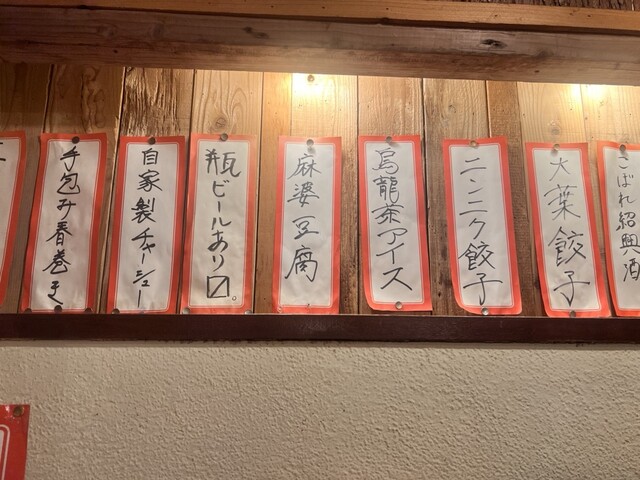 こぼれ紹興酒
大葉餃子
ニンニク餃子
烏龍茶アイス
麻婆豆腐
瓶ビールあり〼。
自家製チャーシュー
手包み春巻き